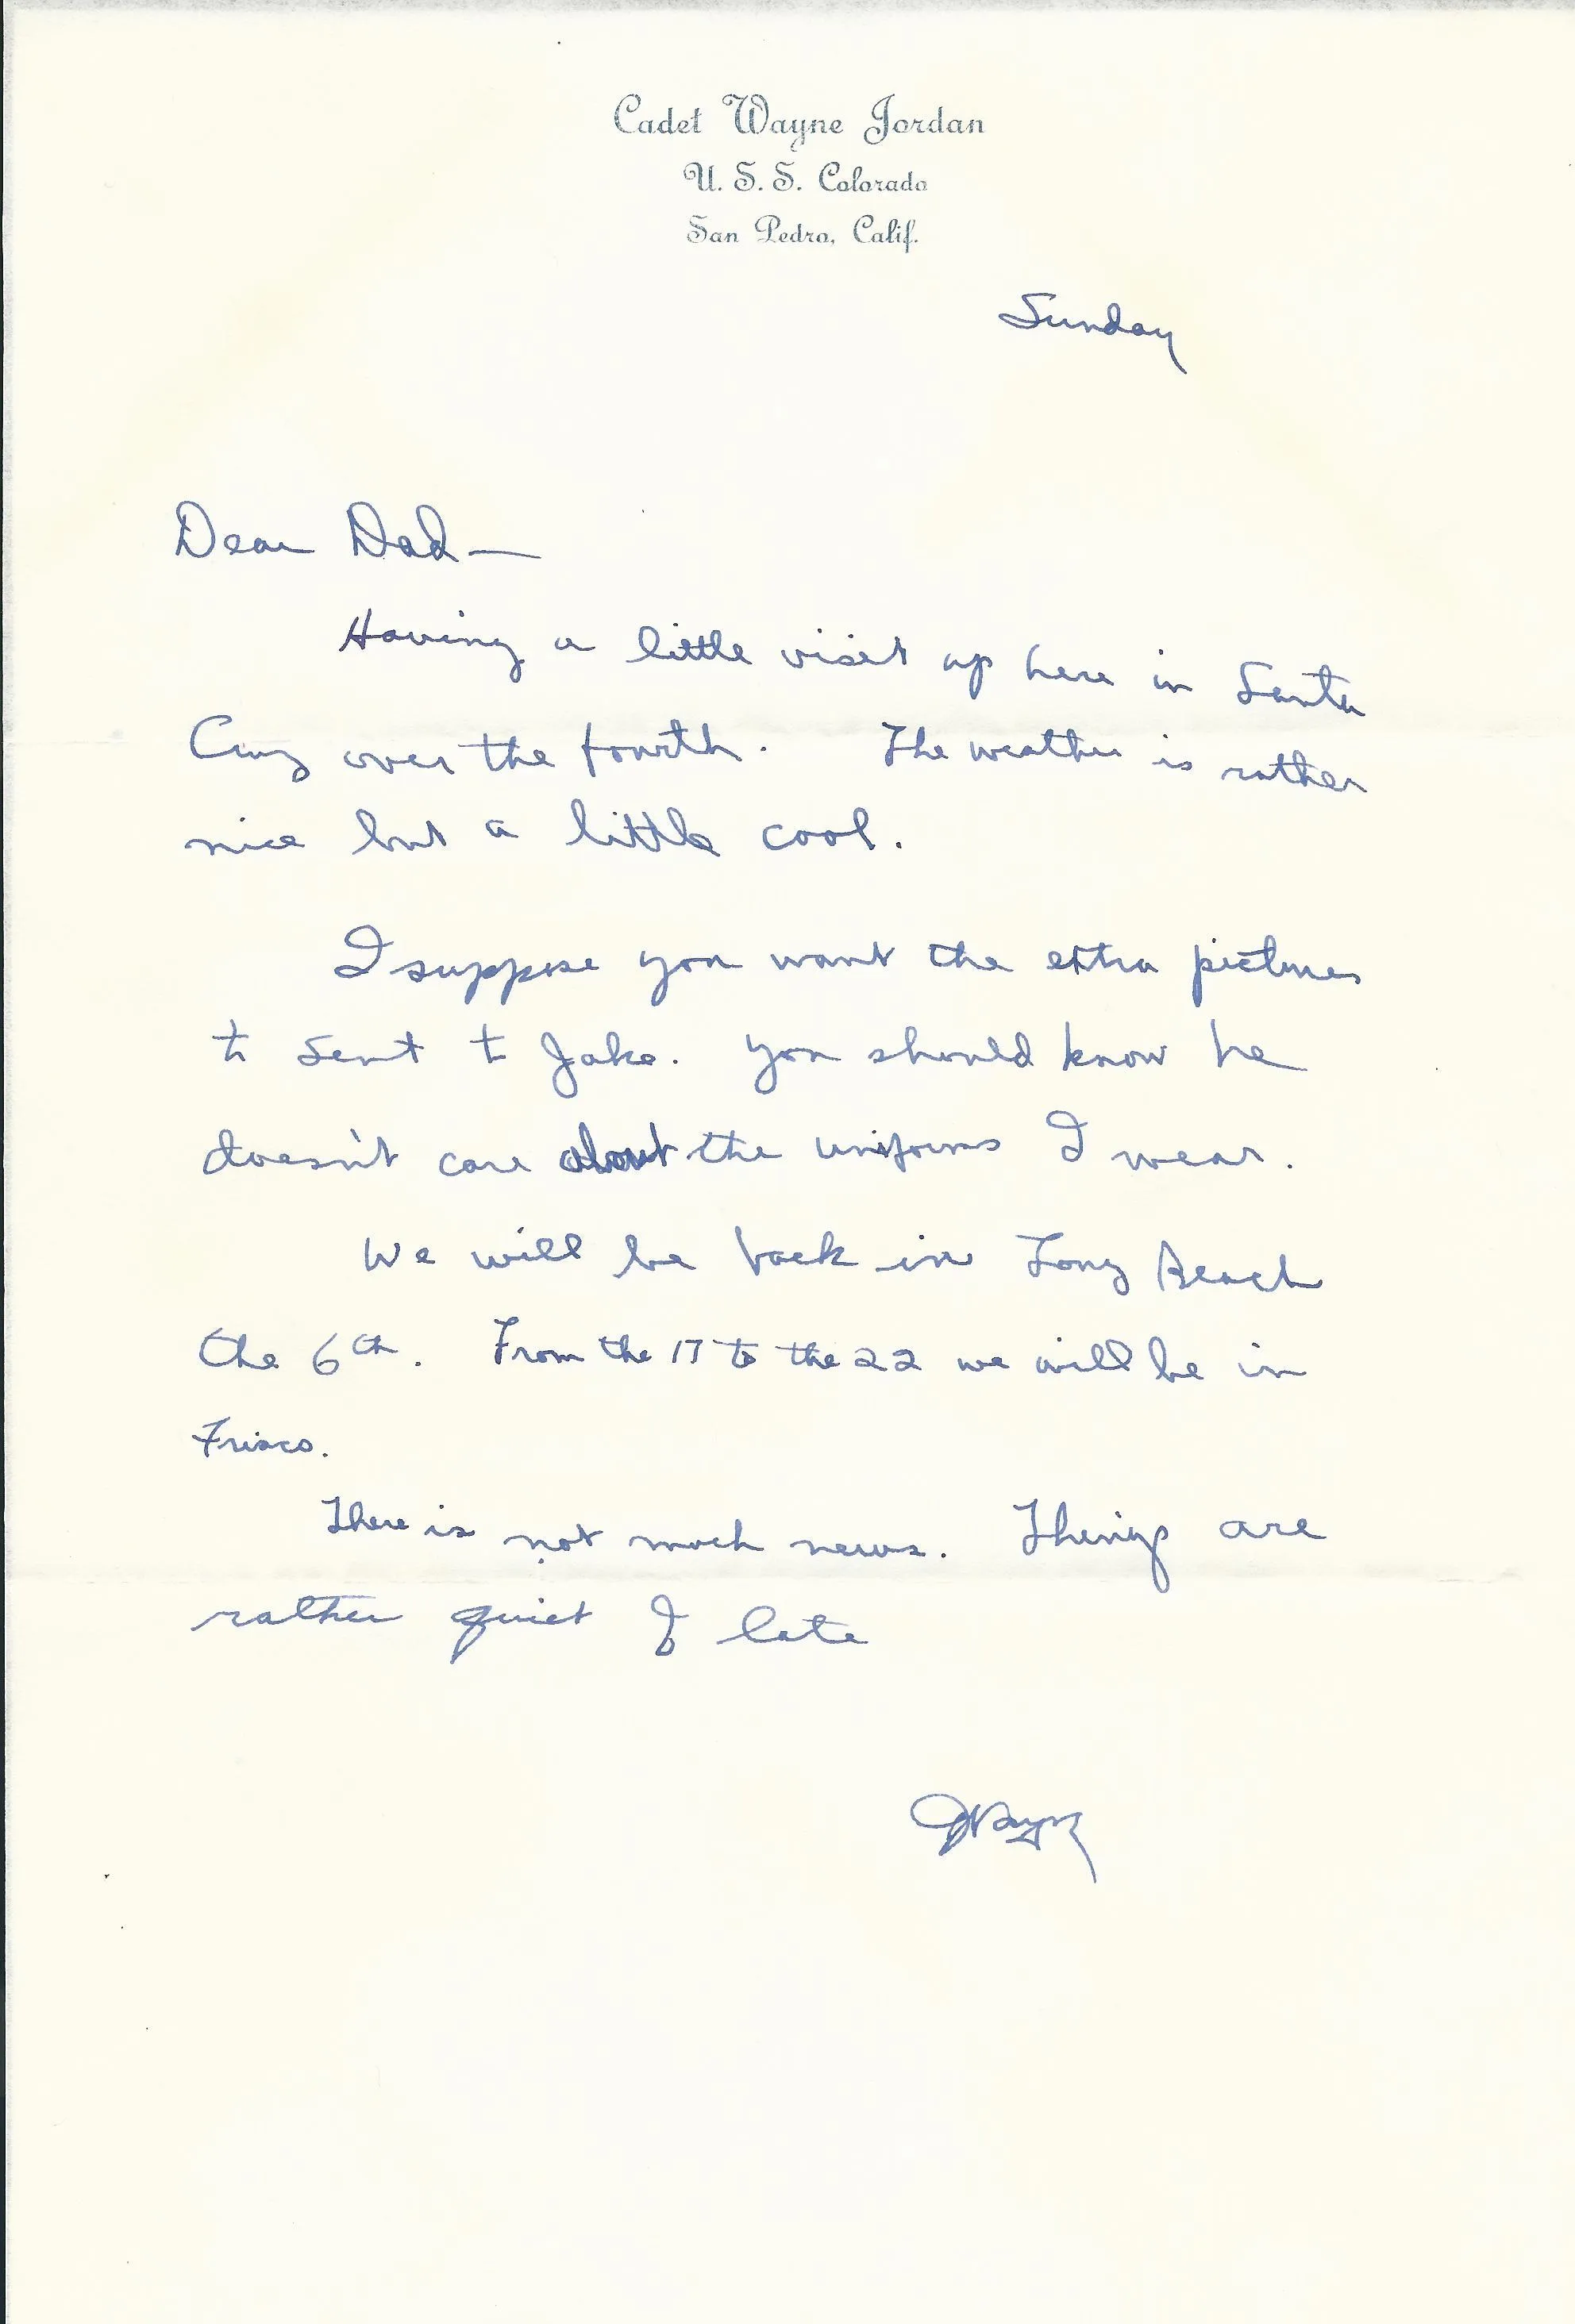 Cadet Wayne Jordan
U. S. S. Colorado
San Pedro, Calif.
Sunday
Dear Dad —
Having a little visit up here in Santa
Cruz over the fourth. The weather is rather
nice but a little cool.
I suppose you want the extra pictures
to sent to Jake. You should know he
doesn't care about the uniforms I wear.
We will be back in Long Beach
the 6th. From the 17 to the 22 we will be in
Frisco.
There is not much news. Things are
rather quiet of late
Wayne